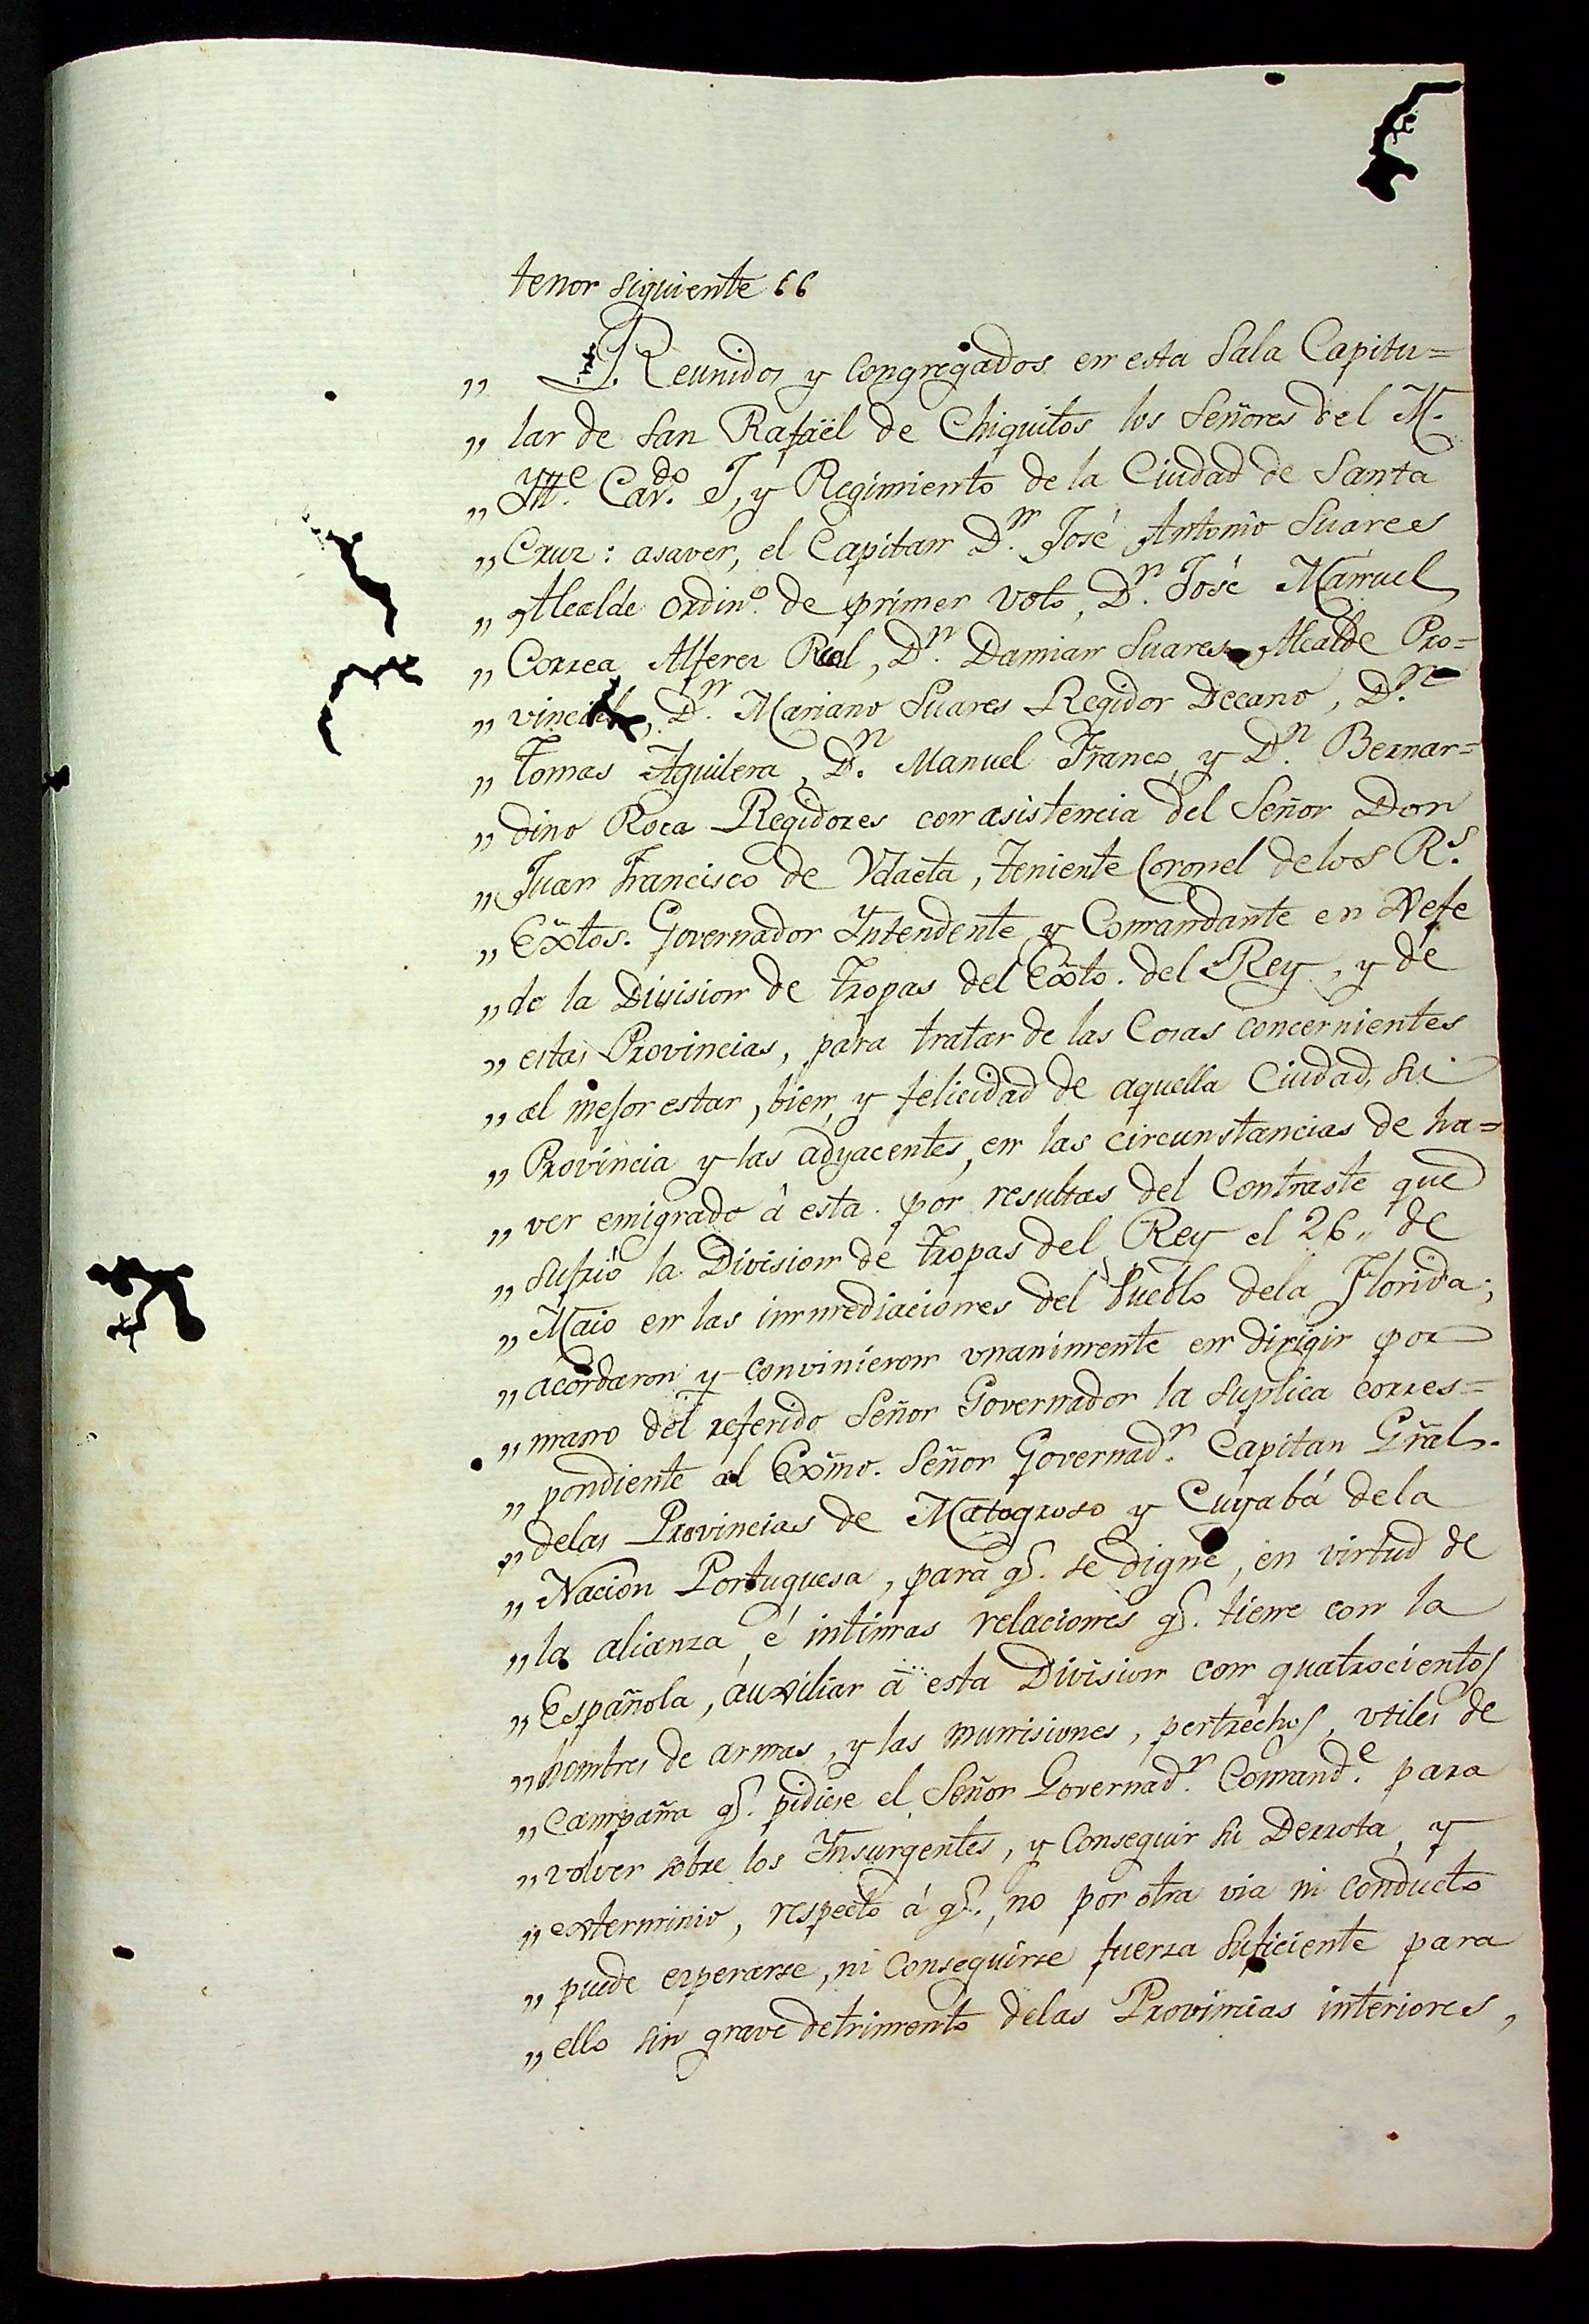 tenor siguiente “
„ Reunidos y Congregados en esta Sala Capitu=
„ lar de San Rafaël de Chiquitos los Señores del M.
„ Ytte. Cavdo. J, y Regimiento de la Ciudad de Santa
„ Cruz: asaver, el Capitan Dn. José Antonio Suares
„ Alcalde ordino. de primer Voto, Dn. José Manuel
„ Correa Alferez Real, Dn. Damian Suares Alcalde Pro=
„ vincial, Dn. Mariano Suares Regidor Decano, Dn.
„ Tomas Aguilera, Dn. Manuel Franco, y Dn. Bernar=
„ dino Roca Regidores con asistencia del Señor Don
„ Juan Francisco de Vdaeta, teniente Coronel delos Rs.
„ Exto̅s. Governador Yntendente y Comandante en Xefe
„ de la Division de tropas del Exto̅. del Rey, y de
„ estas Provincias, para tratar de las Cosas concernientes
„ al mejor estar, bien, y felicidad de aquella Ciudad, su
„ Provincia y las adyacentes, en las circunstancias de ha=
„ ver emigrado à esta por resultas del Contraste que
„ sufrió la Division de tropas del Rey el 26„ de
„ Maio en las inmediaciones del Pueblo dela Florida;
„ acordaron y convinieron vnanimente en dirigir por
„ mano del referido Señor Governador la suplica corres=
„ pondiente al Exm̃o. Señor Governadr. Capitan Gñral.
„ delas Provincias de Matogroso y Cuyabá dela
„ Nacion Portuguesa, para q̃. se digne, en virtud de
„ la alianza é intimas relaciones q̃. tiene con la
„ Española, auxiliar à esta Division con quatrocientos
„ hombres de armas, y las munisiones, pertrechos, vtiles de
„ Campaña q̃. pidiese el Señor Governadr. Comande. para
„ volver sobre los Ynsurgentes, y Conseguir su Derrota, y
„ exterminio, respecto á q̃., no por otra via ni conducto
„ puede esperarse, ni Conseguirse fuerza suficiente para
„ ello sin grave detrimento delas Provincias interiores,